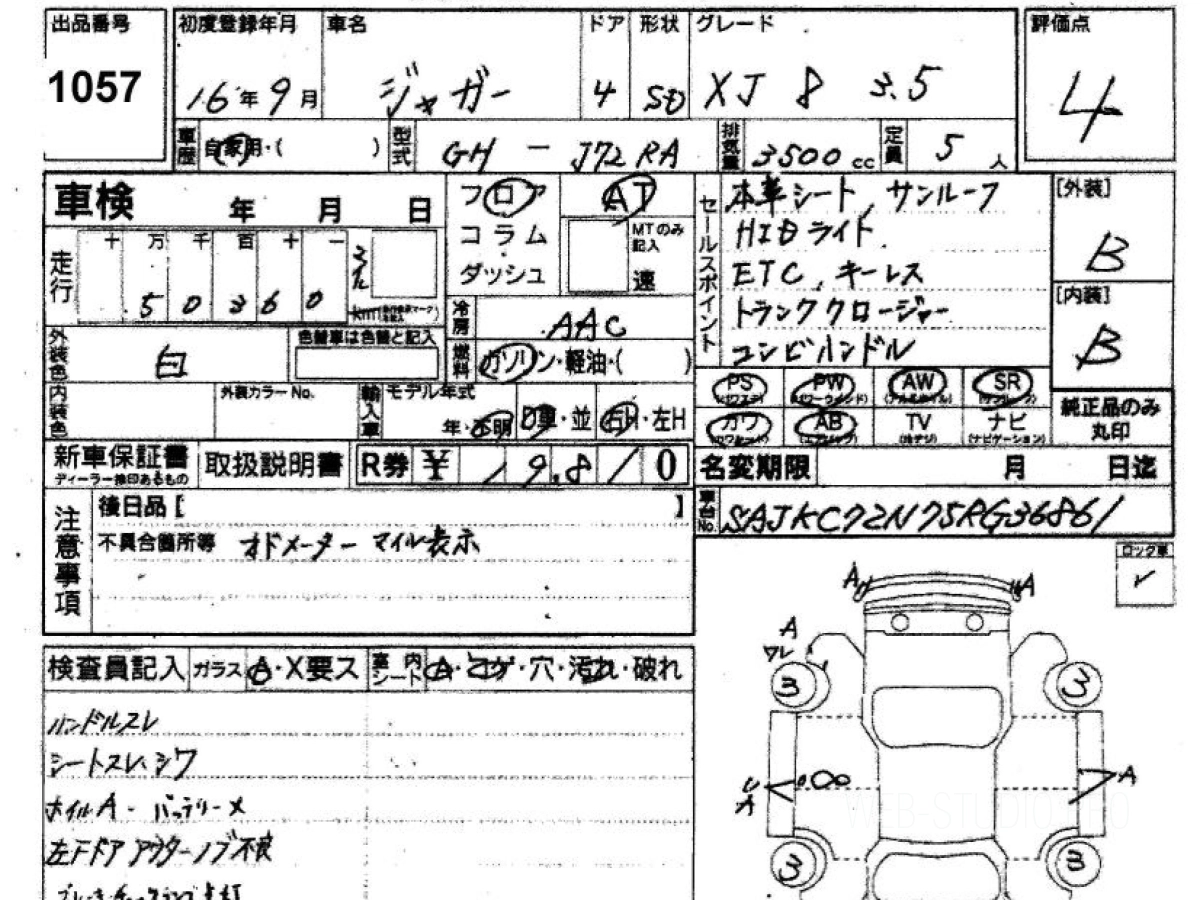 出品番号 初度登録年月 車名 ドア 形状 グレード 評価点
1057 16年9月 ジャガー 4 SD XJ 8 3.5 4
車歴 自家用・( ) 型式 GH - J72RA 排気量 3500cc 定員 5人
車検 年 月 日
走行 十 万 千 百 十 一
50360 km
外装色 白 色替車は色替と記入
内装色 外装カラーNo.
フロア AT
コラム MTのみ記入
ダッシュ 速
冷房 AAC
燃料 ガソリン・軽油・( )
輸入車 モデル年式 年・不明 D車・並 右H・左H
セールスポイント 本革シート, サンルーフ
HIDライト
ETC, キーレス
トランククロージャー
コンビハンドル
[外装] B
[内装] B
PS PW AW SR
カワ AB TV ナビ (ナビゲーション)
純正品のみ丸印
新車保証書 ディーラー捺印あるもの 取扱説明書 R券 ¥ 19.810
名変期限 月 日迄
車台No. SAJKC72N75RG36861
注意事項 後日品 [ ]
不具合箇所等 オドメーター マイル表示
ロック車 ✓
検査員記入 ガラス A・X要ス 室内シート A・コゲ・穴・汚れ・破れ
ハンドルスレ
シートスレ、シワ
ホイルA - バッテリーメ
左Fドア アウターノブ不良
A A
A
ワレ
3 3
A A
3 3
WEB-STUDIO.PRO